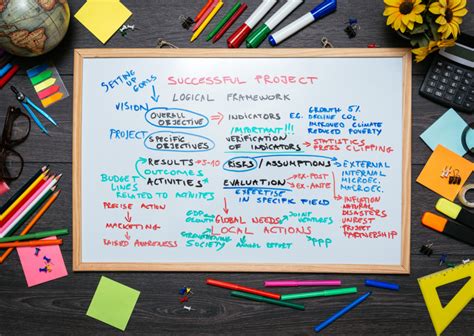 SUCCESSFUL PROJECT
LOGICAL FRAMEWORK
SETTING UP GOALS
VISION
OVERALL OBJECTIVE
INDICATORS E.G. GROWTH 5%
DECLINE CO2
IMPROVED CLIMATE
REDUCED POVERTY
IMPORTANT!!!
PROJECT
SPECIFIC OBJECTIVES
VERIFICATION OF INDICATORS
STATISTICS
PRESS CLIPPING
RESULTS 5-10
OUTCOMES
RISKS/ASSUMPTIONS
EXTERNAL
INTERNAL
MICROEC.
MACROEC.
BUDGET LINES RELATED TO ACTIVITES
ACTIVITIES
EVALUATION
EX-POST
EX-ANTE
EXPERTISE IN SPECIFIC FIELDS
INFLATION
NATURAL DISASTERS
UNREST
PROJECT PARTNERSHIP
PRECISE ACTION
MARKETING
RAISED AWARENESS
GDP GROWTH
GLOBAL NEEDS
LOCAL ACTIONS
JOINT VENTURES
STRENGTHENING SOCIETY
ANNUAL REPORT
PPP